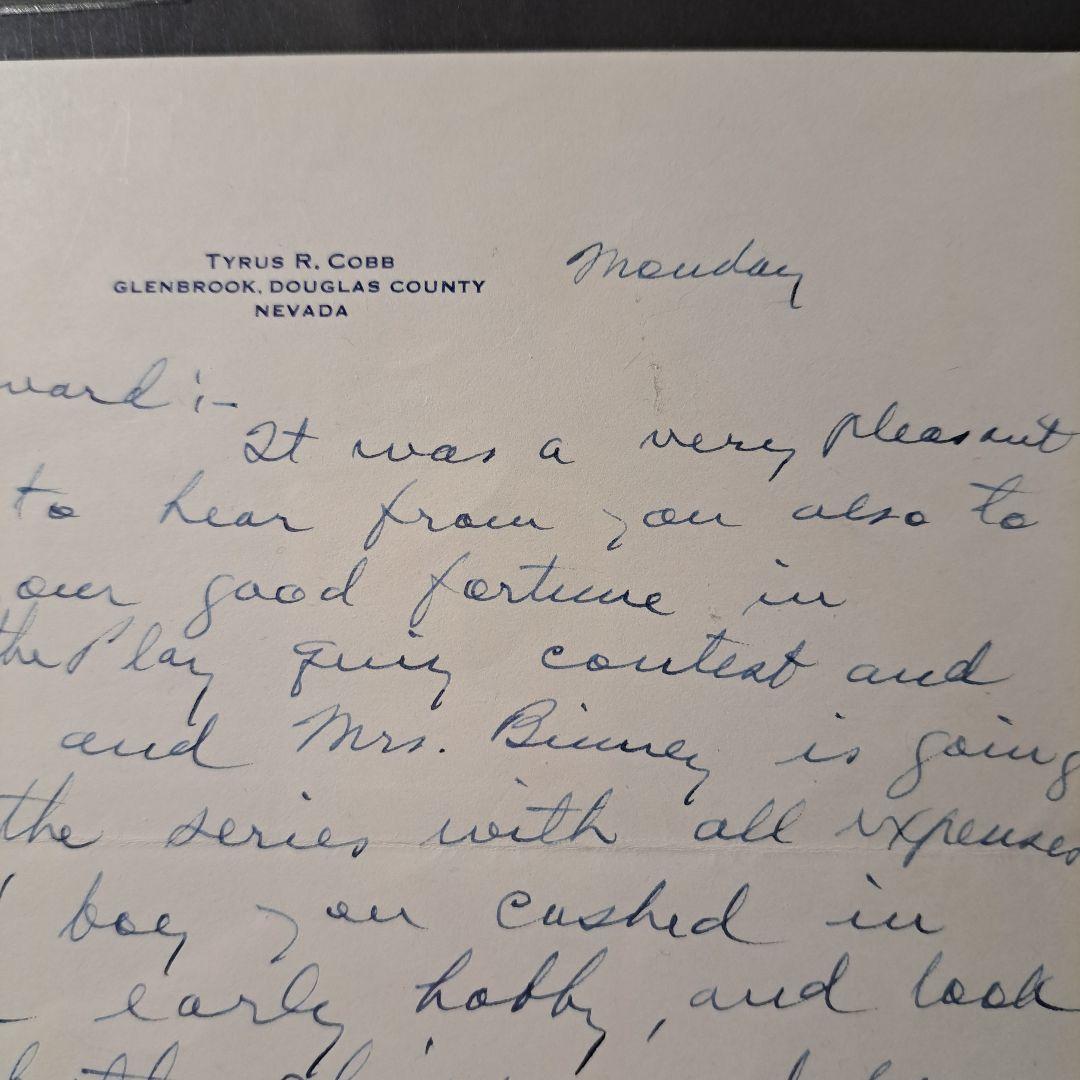 TYRUS R. COBB
GLENBROOK, DOUGLAS COUNTY
NEVADA
Monday
ward :-
It was a very pleasant
to hear from you also to
our good fortune in
the Play quiz contest and
and Mrs. Binney is going
the series with all expenses
boy you cashed in
early hobby, and look